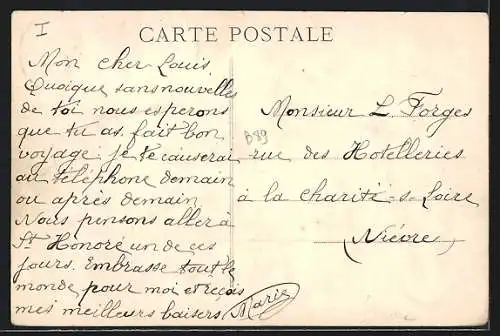 I
CARTE POSTALE
Mon cher Louis.
Quoique sans nouvelles
de toi nous esperons
que tu as fait bon
voyage. je te causerai
au téléphone demain
ou après demain
Nous pensons aller à
St Honoré un de ces
jours. Embrasse tout le
monde pour moi et reçois
mes meilleurs baisers
Marie
B89
Monsieur L. Forges
rue des Hotelleries
à la Charité-s-Loire
Nièvre